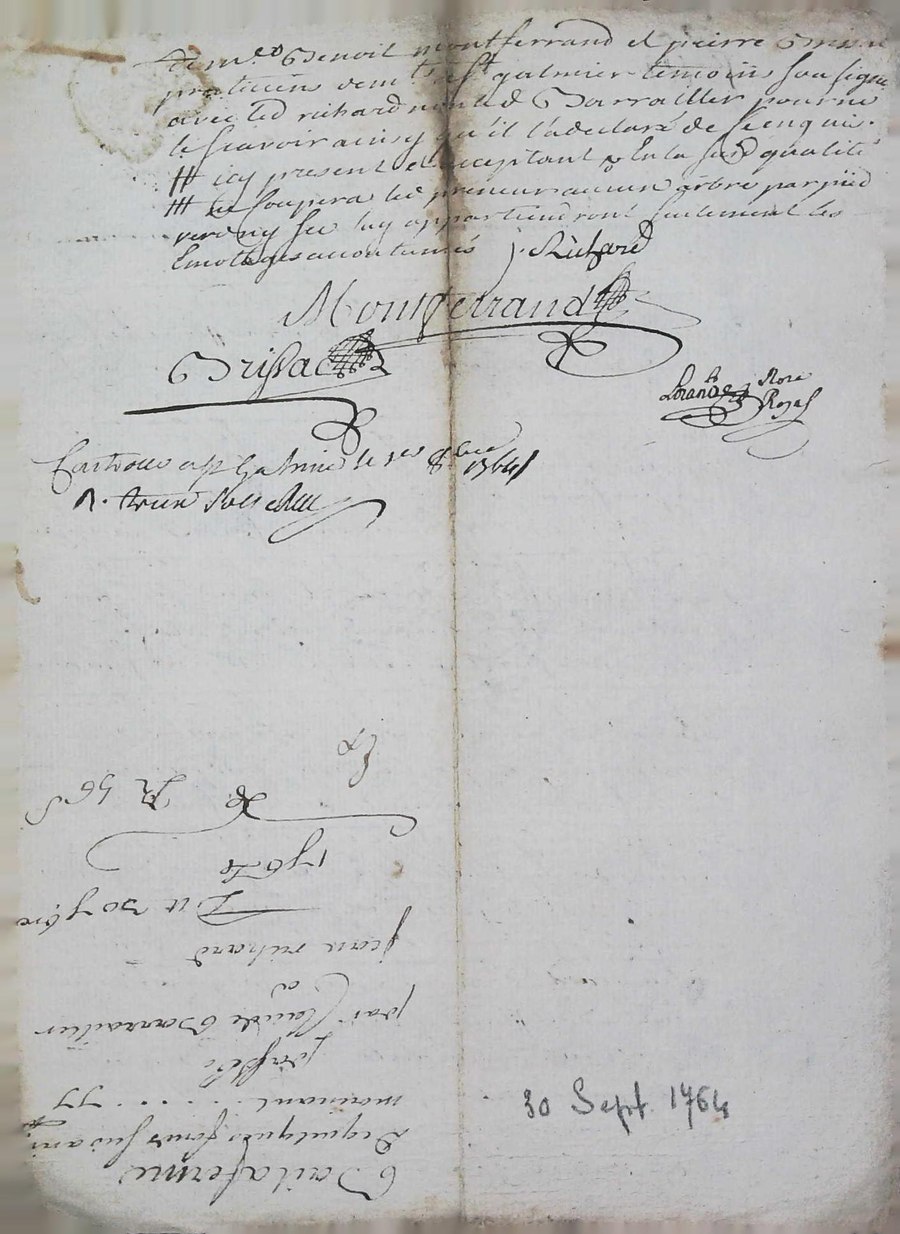 de m.e Benoit montferrand et pierre Brissac
praticiens dem.ts a S.t galmier temoins sousignes
avec led richard non led Barrailler pour ne
le scavoir ainsy qu'il l'a declaré de ce enquis.
# icy present et acceptant & En la susd qualité
## ne Coupera led preneur aucun arbre par pied
verd ny sec luy appartiendront seulement les
Emottages accoutumés J. Richard
Montferrand
Brissac
Not.re
Royal
Controllé a St Galmier le 1er 8bre 1764
R. treize sols
Bail a ferme
de quelques fonds
mornant
passé
par Claude Barrailler
a
jean richard
Du 30 7bre
1764
30 Sept. 1764